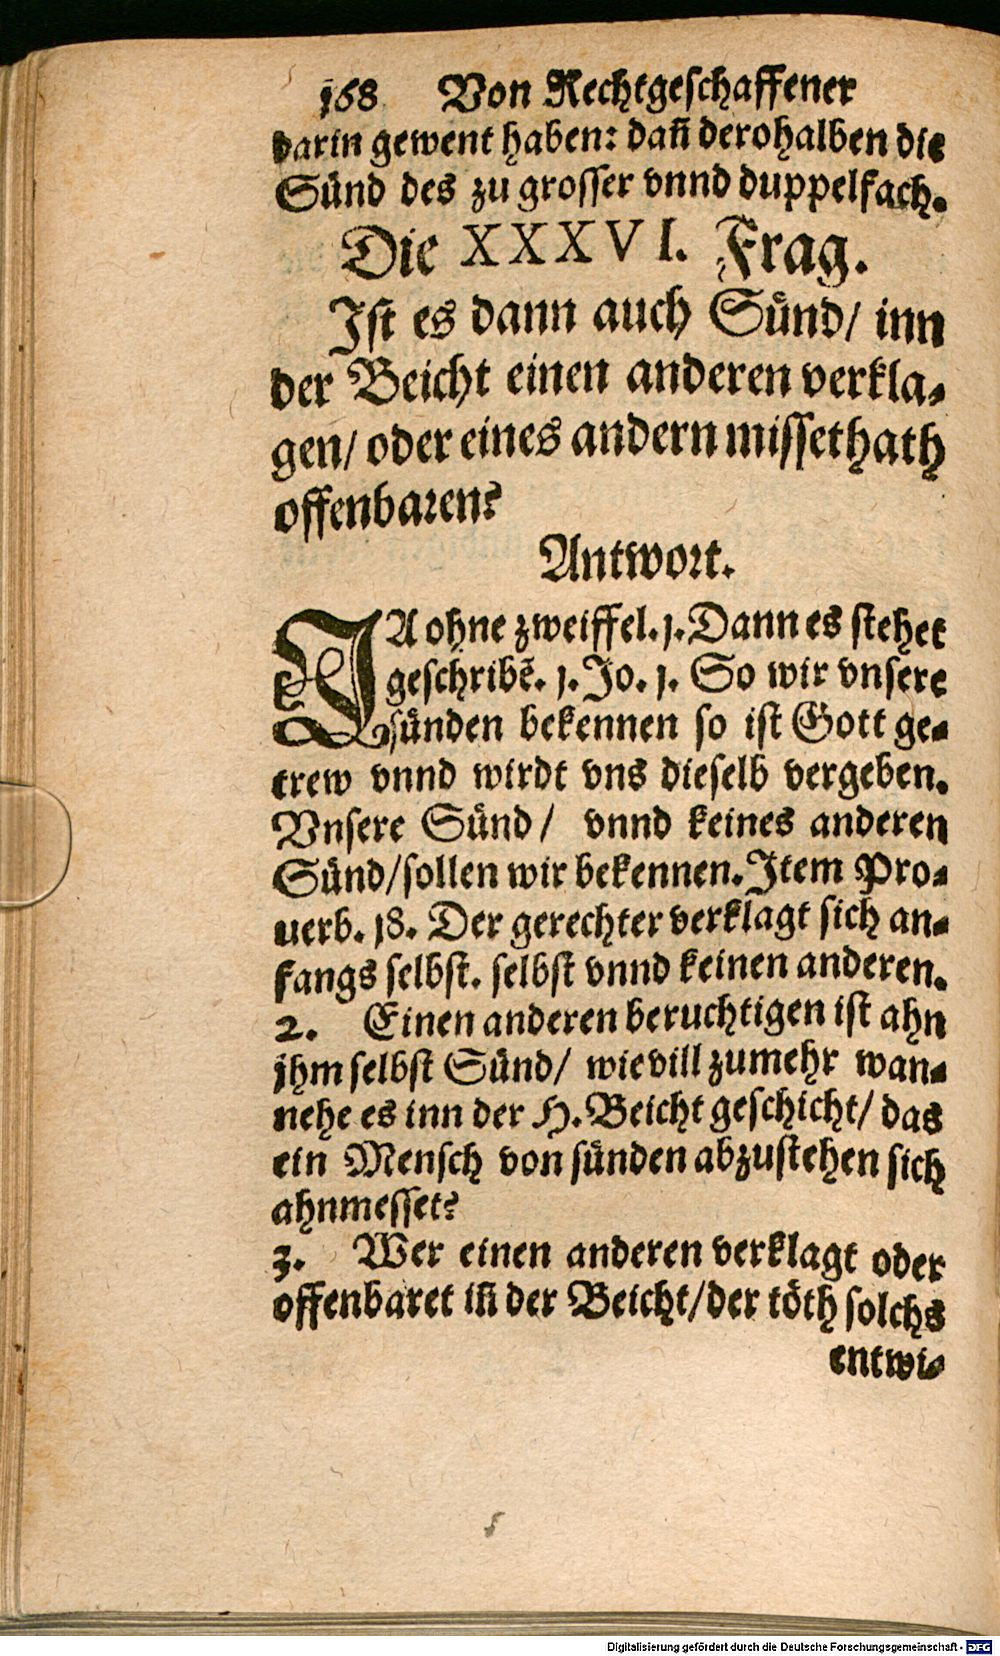 168 Von Rechtgeschaffener
darin gewent haben: dañ derohalben die
Sünd des zu grosser vnnd duppelfach.
Die XXXVI. Frag.
Ist es dann auch Sünd/ inn
der Beicht einen anderen verkla-
gen/ oder eines andern missethath
offenbaren?
Antwort.
JA ohne zweiffel. 1. Dann es stehet
geschribẽ. 1. Jo. 1. So wir vnsere
sünden bekennen so ist Gott ge-
trew vnnd wirdt vns dieselb vergeben.
Vnsere Sünd/ vnnd keines anderen
Sünd/ sollen wir bekennen. Item Pro-
uerb. 18. Der gerechter verklagt sich an-
fangs selbst. selbst vnnd keinen anderen.
2. Einen anderen beruchtigen ist ahn
jhm selbst Sünd/ wie vill zumehr wan-
nehe es inn der H. Beicht geschicht/ das
ein Mensch von sünden abzustehen sich
ahnmesset?
3. Wer einen anderen verklagt oder
offenbaret iñ der Beicht/ der töth solchs
entwi-
Digitalisierung gefördert durch die Deutsche Forschungsgemeinschaft - DFG